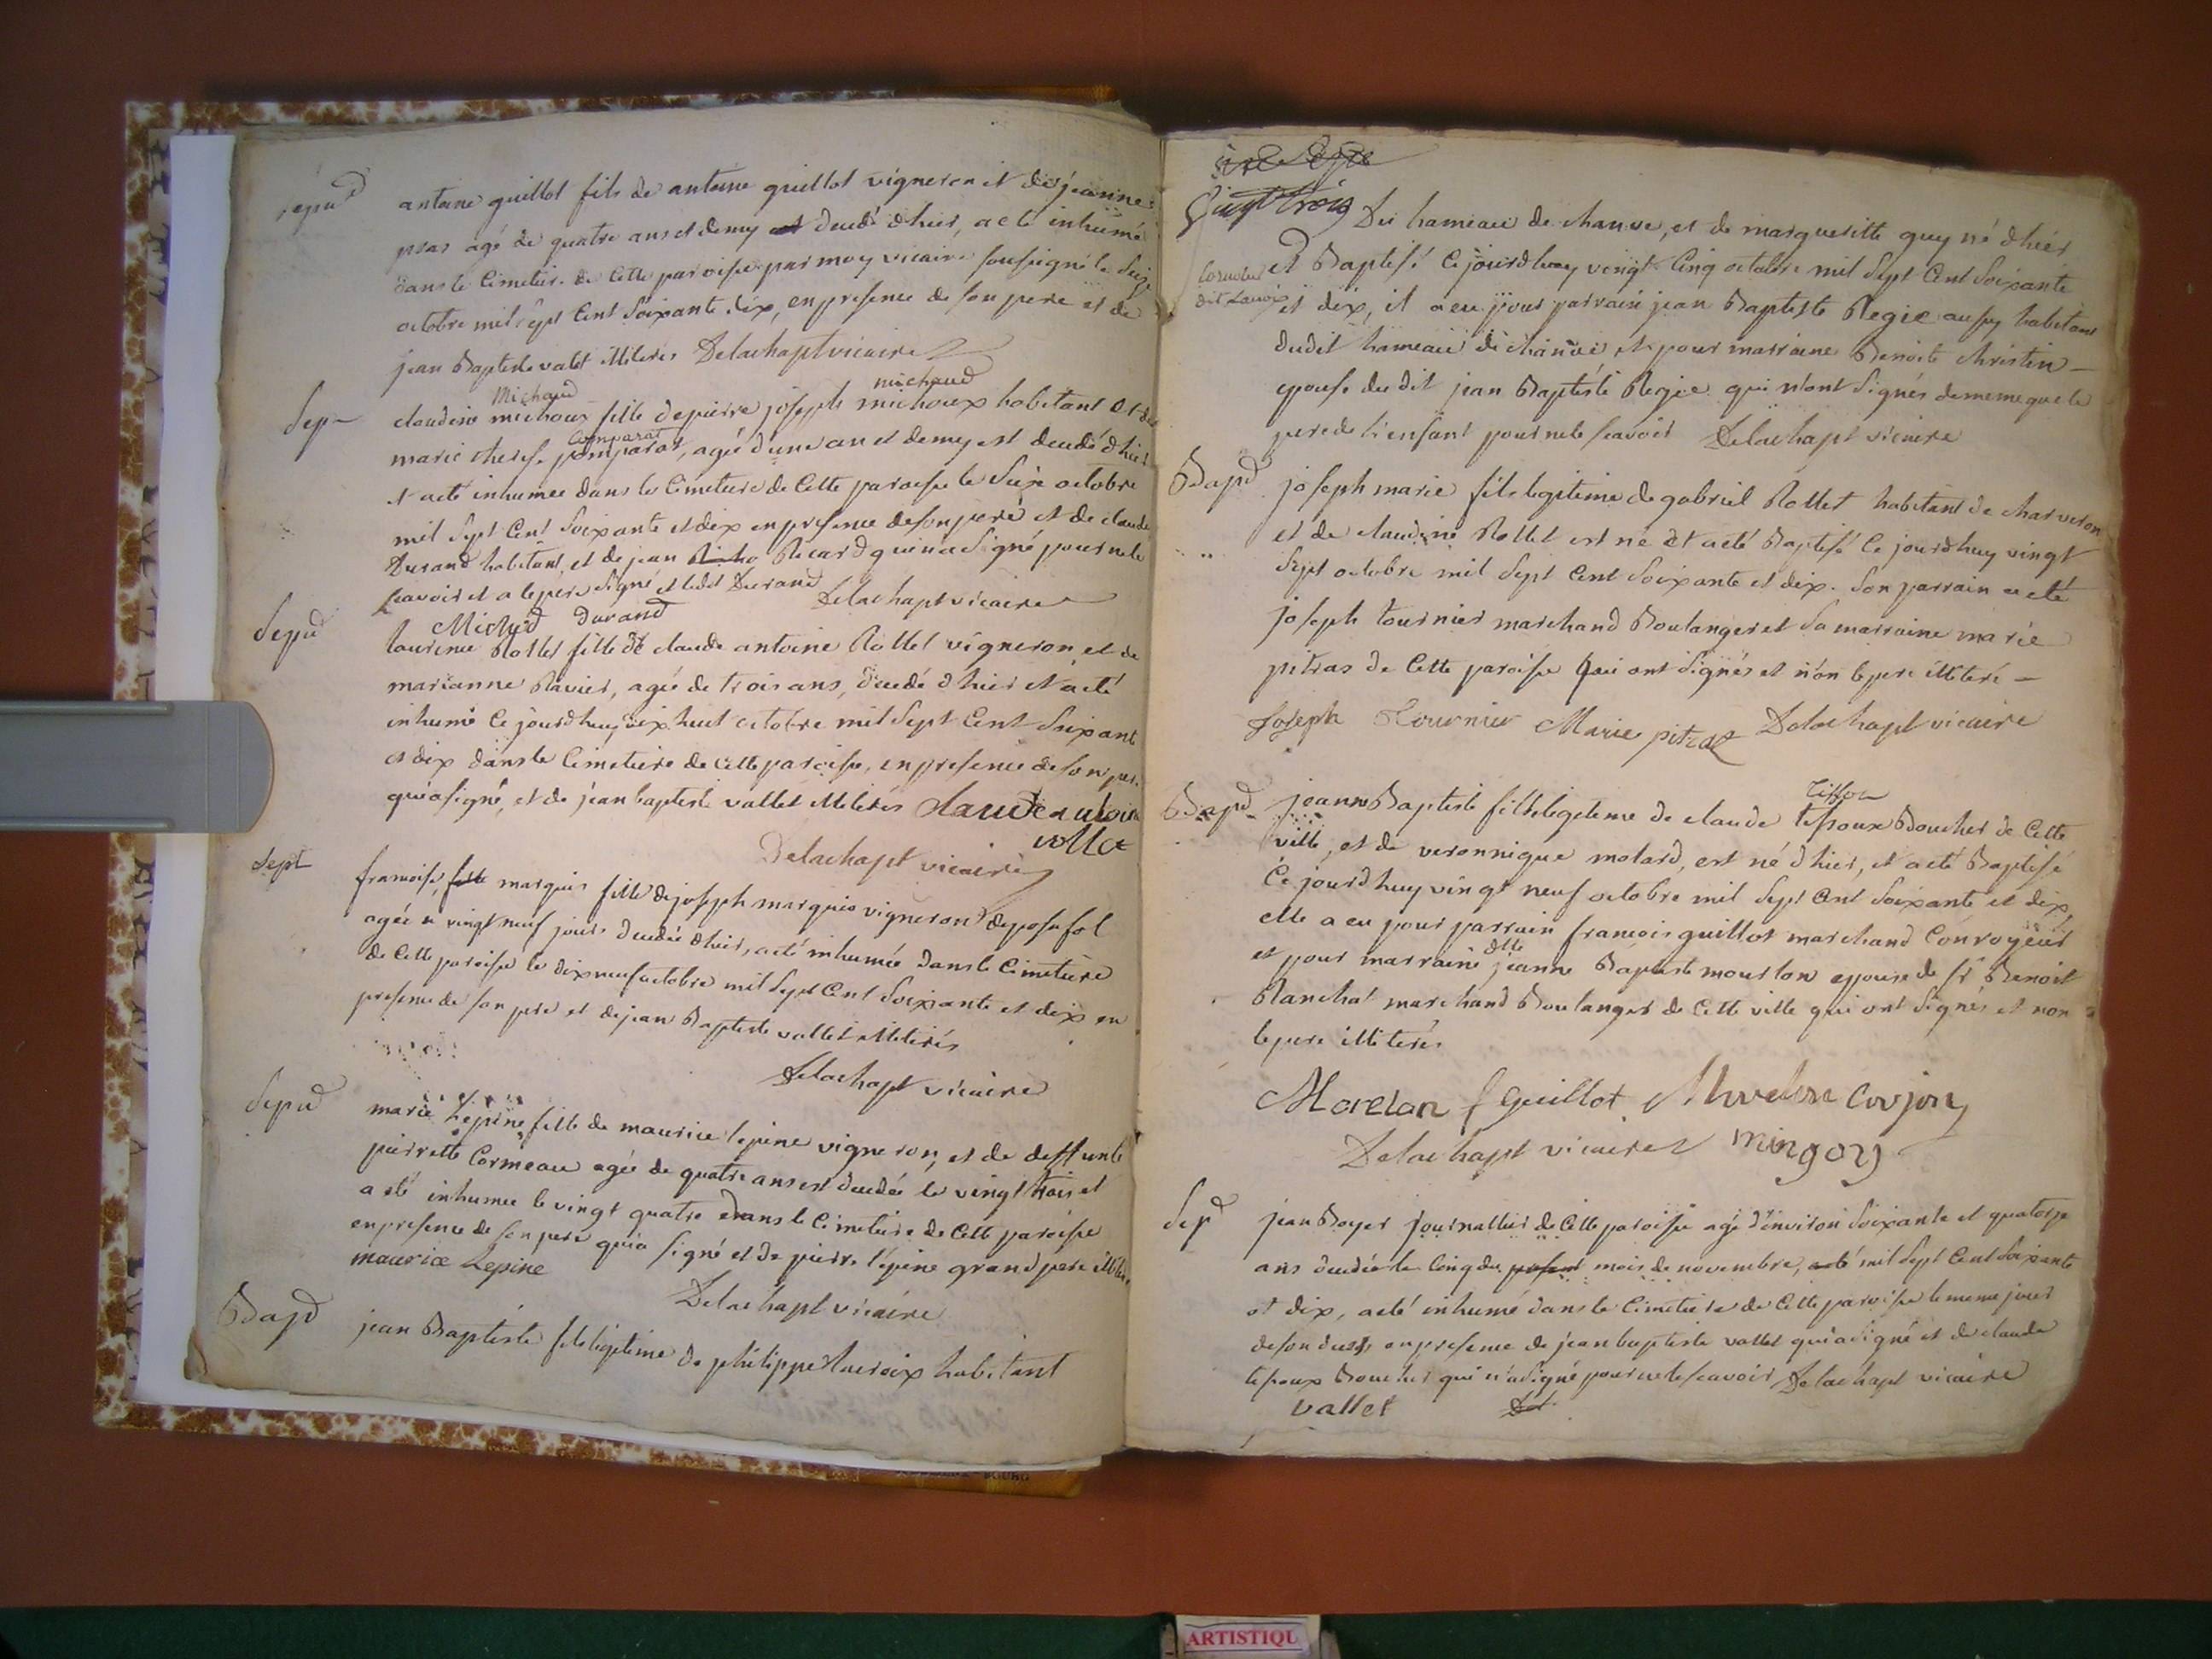 sepud
antoine guillot fils de antoine guillot vigneron et de jeanne
pras agé de quatre ans et demy est decedé dhier, a eté inhumé
dans le Cimetiere de Cette paroisse par moy vicaire soussigné le Seize
octobre mil sept Cent Soixante dix, en presence de son pere et de
jean Baptiste valet illiterés Delachapt vicaire
Michaud michaud
Sep claudine michoux fille de pierre joseph michoux habitant et de
Comparat
marie therese pomparat, agée d'une an et demy est decedé dhier
et a eté inhumee dans le Cimetiere de Cette paroisse le Seize octobre
mil Sept Cent Soixante et dix en presence de son pere et de claude
Durand habitant, et de jean Ricard qui n'a Signé pour ne le
scavoir et a le pere signé et ledit Durand Delachapt vicaire
Michaud durand
Sepud laurence Rollet fille de claude antoine Rollet vigneron et de
marianne Ravier, agée de trois ans, decedé dhier et a eté
inhumé Ce jourdhuy dix huit octobre mil Sept Cent Soixante
et dix dans le Cimetiere de cette paroisse, en presence de son pere
qui a signé, et de jean baptiste vallet illiterés claude antoine
rollet
Delachapt vicaire
Sept francoise marquis fille de joseph marquis vigneron
agée de vingt neuf jours decedée dhier, a eté inhumée dans le Cimetiere
de Cette paroisse le dix neuf octobre mil Sept Cent Soixante et dix en
presence de son pere et de jean Baptiste vallet illiterés
Delachapt vicaire
Sepud marie Lepine fille de maurice lepine vigneron, et de deffunte
pierrette Cormeau agée de quatre ans est decedée le vingt trois et
a eté inhumee le vingt quatre dans le Cimetiere de Cette paroisse
en presence de son pere qui a Signé et de pierre lepine grand pere illiteré
maurice Lepine
Delachapt vicaire
Bapd jean Baptiste fils legitime de philippe Lacroix habitant
vingt trois
Du hameau de chanve, et de margueritte guy né dhier
et Baptisé Ce jourdhuy vingt Cinq octobre mil Sept Cent Soixante
dit Lacroix
et dix, il a eu pour parrain jean Baptiste Regie aussy habitant
dudit hameau de chanve et pour marraine Benoite christin
epouse du dit jean Baptiste Regie qui n'ont Signés de meme que le
pere de l'enfant pour ne le scavoir Delachapt vicaire
Bapd joseph marie fils legitime de gabriel Rollet habitant de charveron
et de claudine Rollet est né et a eté Baptisé Ce jourdhuy vingt
Sept octobre mil Sept Cent Soixante et dix. Son parrain a eté
joseph tournier marchand Boulanger et Sa marraine marie
pitras de Cette paroisse qui ont Signés et non le pere illiteré
Joseph Tournier Marie pitras Delachapt vicaire
Tissou
Bapd jeanne Baptiste fille legitime de claude tessoux Boucher de Cette
ville, et de veronnique molard, est né dhier, et a eté Baptisé
Ce jourdhuy vingt neuf octobre mil Sept Cent Soixante et dix,
elle a eu pour parrain francois guillot marchand Conroyeur
dlle
et pour marraine jeanne Baptiste mourlon epouse de Sr Benoit
Blanchat marchand Boulanger de Cette ville qui ont Signés et non
le pere illiterés
Morelan f Guillot Covjon
Delachapt vicaire mingon
Sepd jean Boyer journallier de Cette paroisse agé d'environ Soixante et quatorze
ans decedé le Cinq du present mois de novembre, mil Sept Cent Soixante
et dix, a eté inhumé dans le Cimetiere de Cette paroisse le meme jour
de son deces, en presence de jean baptiste vallet qui a Signé et de claude
tessoux Boucher qui n'a Signé pour ne le scavoir Delachapt vicaire
vallet
ARTISTIQU